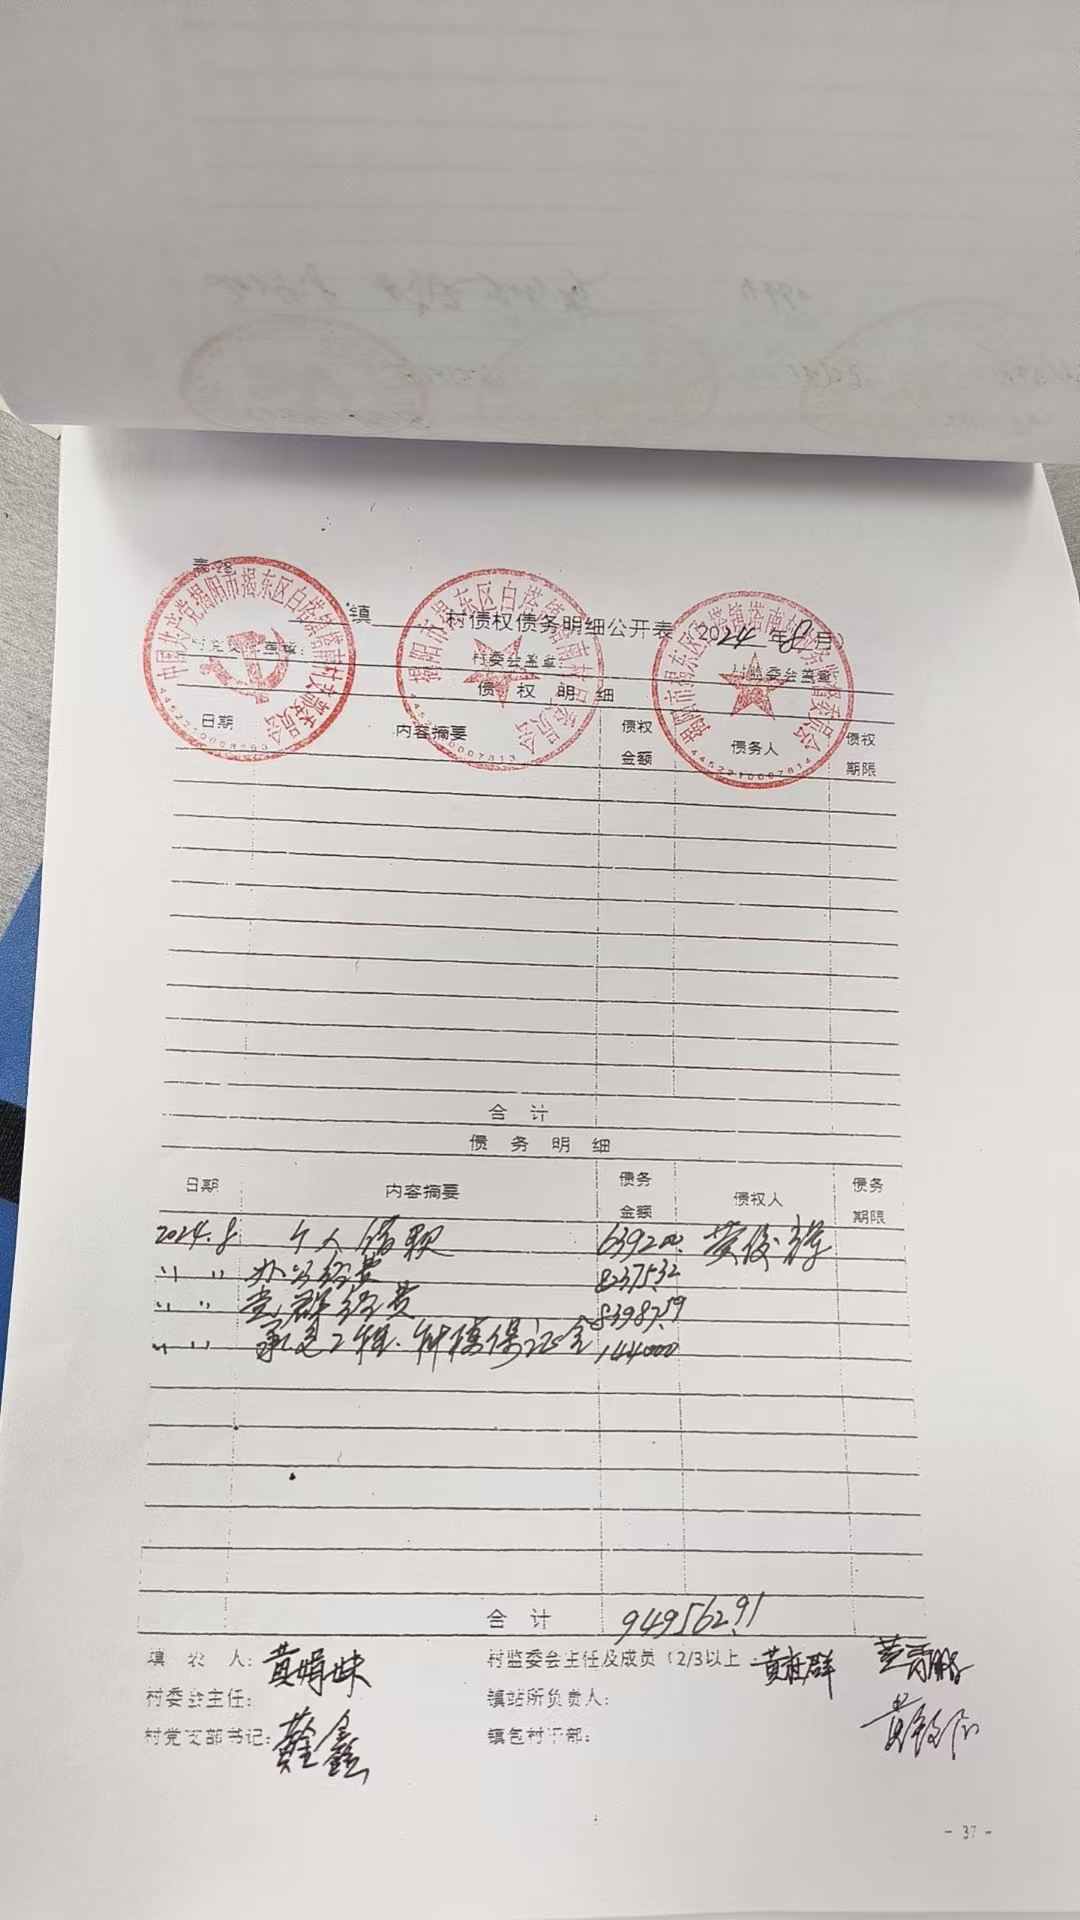 表28
镇 村债权债务明细公开表（2024年8月）
村党支部盖章： 村委会盖章： 村监委会盖章
中国共产党揭阳市揭东区白塔镇塔南村支部委员会
揭阳市揭东区白塔镇塔南村民委员会
4452210007813
揭阳市揭东区白塔镇塔南村务监督委员会
4452210007814
债权明细
日期 内容摘要 债权金额 债务人 债权期限
合计
债务明细
日期 内容摘要 债务金额 债权人 债务期限
2024.8 个人借款 639200. 黄俊
〃 〃 办公经费 82375.32
〃 〃 党群经费 83987.59
〃 〃 承包工程、 保证金 144000
合计 949562.91
填表人：黄娟妹 村监委会主任及成员（2/3以上 黄 群 黄
村委会主任： 镇站所负责人：
村党支部书记： 鑫 镇包村干部： 黄
- 37 -